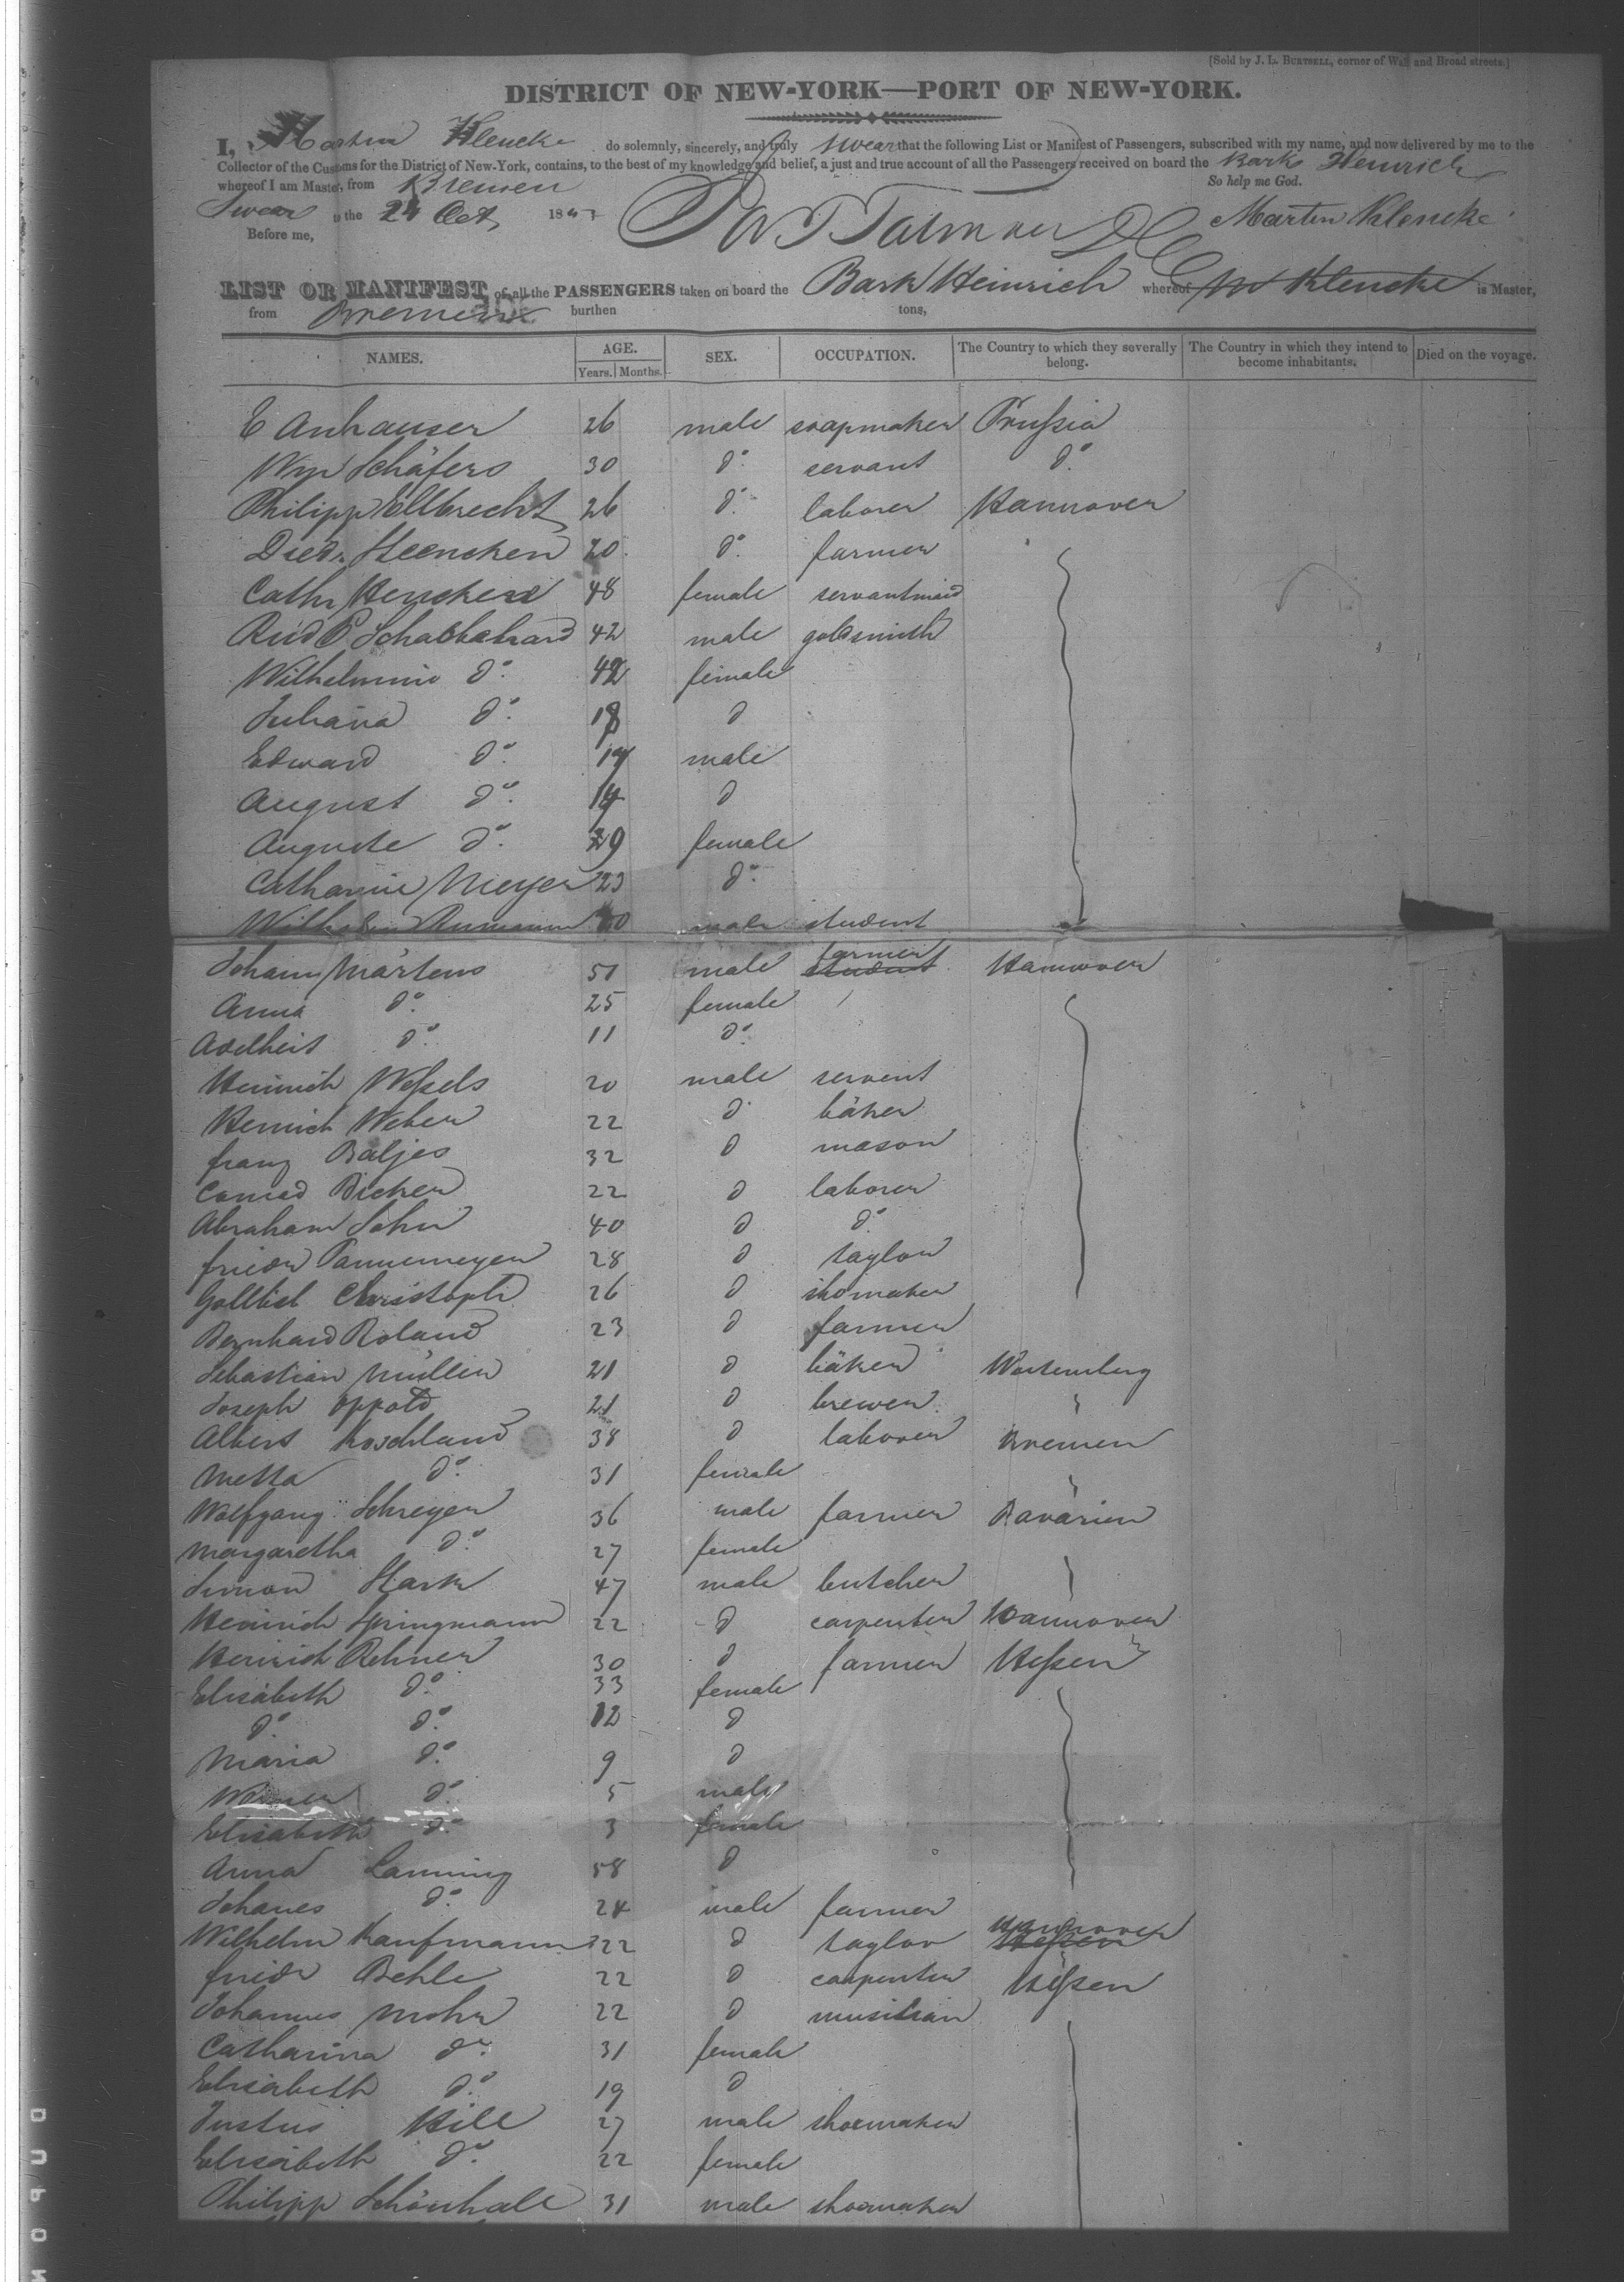 [Sold by J. L. BURTSELL, corner of Wall and Broad streets.]
DISTRICT OF NEW-YORK—PORT OF NEW-YORK.
I, Martin Klencke do solemnly, sincerely, and truly swear that the following List or Manifest of Passengers, subscribed with my name, and now delivered by me to the
Collector of the Customs for the District of New-York, contains, to the best of my knowledge and belief, a just and true account of all the Passengers received on board the Bark Heinrich
whereof I am Master, from Bremen So help me God.
Swear to the 24 Oct, 184 Martin Klencke
Before me,
LIST OR MANIFEST of all the PASSENGERS taken on board the Bark Heinrich whereof M Klencke is Master,
from Bremen burthen tons,
NAMES. AGE. SEX. OCCUPATION. The Country to which they severally belong. The Country in which they intend to become inhabitants. Died on the voyage.
Years. Months.
E Anhauser 26 male soapmaker Prußia
Wm Schäfers 30 do. servant do.
Philipp Ellbrecht 26 do. laborer Hannover
Died. Heencken 20 do. farmer
Cath. Hencken 48 female servantmaid
Rud 42 male goldsmith
Wilhelmine do. 42 female
Juliana do. 18 do
Edward do. 17 male
August do. 14 do
Auguste do. 9 female
Catharine Meyer 23 do.
Wilhelm male student
Johann Märtens 51 male farmer student Hannover
Anna do. 25 female
Adelheit do. 11 do.
Heinrich Weßels 20 male servent
Henrich Weber 22 do bäker
franz Baljes 32 do mason
Conrad Bicker 22 do laborer
Abraham John 40 do do.
friedr Tannemeyer 28 do taylor
Gottlieb Christoph 26 do shomaker
Bernhard Roland 23 do farmer
Sebastian Müller 21 do bäker Würtemberg
Joseph Oppold 21 do brewer "
Albert Koschland 38 do laborer Bremen
Metta do. 31 female "
Wolfgang Schreyer 36 male farmer Bavarien
Margaretha do. 27 female
Simon Stark 47 male butcher
Heinrich Springmann 22 do carpenter Hannover
Heinrich Rehner 30 do farmer Heßen
Elisabeth do. 33 female
do. do. 12 do
Maria do. 9 do
Werner do. 5 male
Elisabeth do. 3 female
Anna Lanning 58 do
Johanes do. 24 male farmer
Wilhelm Kaufmann 22 do taylor Hannover Heßen
friedr Behle 22 do carpenter Heßen
Johannes Mohr 22 do musician
Catharina do. 31 female
Elisabeth do. 19 do
Justus Hill 27 male shoemaker
Elisabeth do. 22 female
Philipp Schönhale 31 male shoemaker